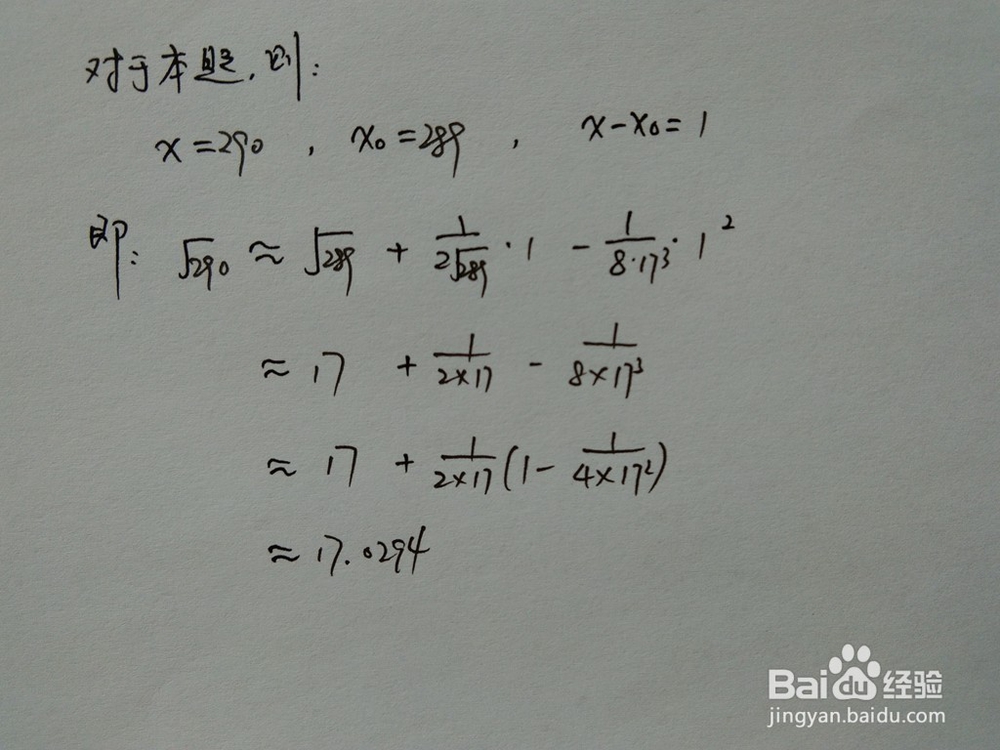 对于本题，则：
x=290 , x₀=289 , x-x₀=1
即：√290 ≈ √289 + 1/(2√289)·1 - 1/(8·17³)·1²
≈ 17 + 1/(2×17) - 1/(8×17³)
≈ 17 + 1/(2×17)(1- 1/(4×17²))
≈ 17.0294
Baidu 经验
jingyan.baidu.com